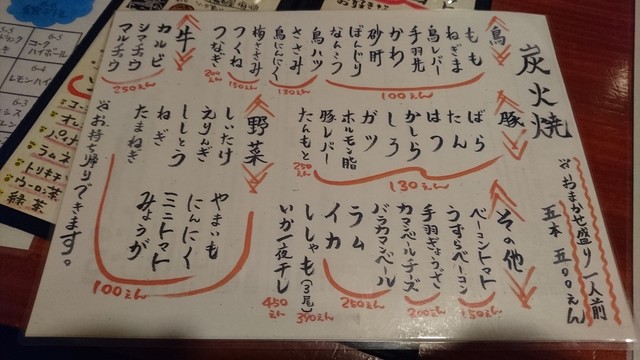 炭火焼
※おまかせ盛り一人前
五本 五00えん
鳥
もも
ねぎま
鳥レバー
手羽先
かわ
砂肝
ぼんじり
なんこつ
鳥ハツ
100えん
ささみ
鳥にんにく
130えん
梅ささみ
つくね
150えん
つなぎ
200えん
牛
カルビ
シマチョウ
マルチョウ
250えん
豚
ばら
たん
はつ
かしら
しろ
ガツ
ホルモン脂
豚レバー
たんもと
250えん
130えん
野菜
しいたけ
えりんぎ
ししとう
ねぎ
たまねぎ
やまいも
にんにく
ミニトマト
みょうが
100えん
その他
ベーコントマト
うずらベーコン
150えん
手羽ぎょうざ
カマンベールチーズ
200えん
バラカマンベール
ラム
イカ
250えん
ししゃも(3尾)
390えん
いか一夜干し
450えん
※お持ち帰りできます。
コーク
ハイボール
レモンハイ
ラムネ
緑茶